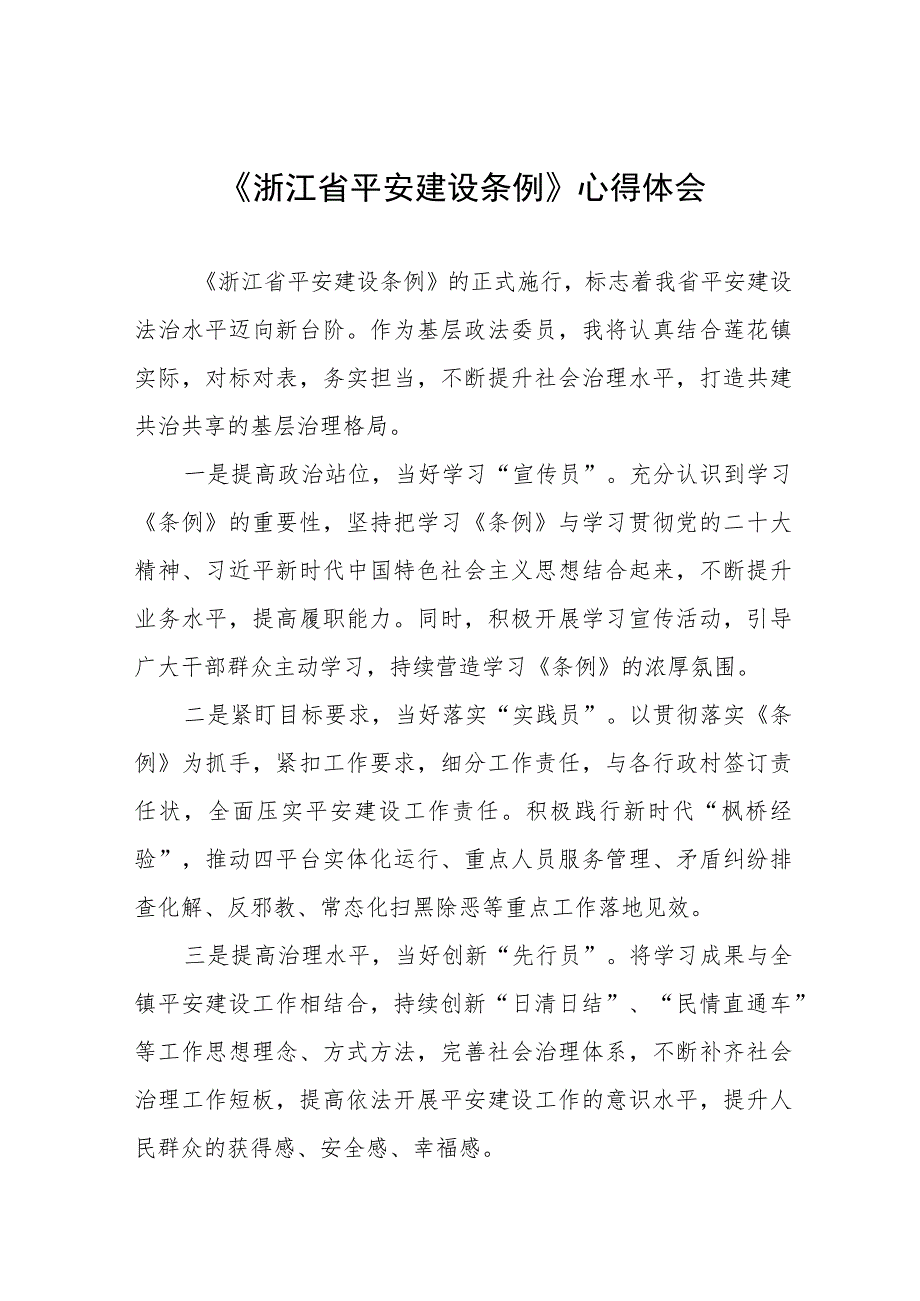 《浙江省平安建设条例》心得体会
《浙江省平安建设条例》的正式施行，标志着我省平安建设
法治水平迈向新台阶。作为基层政法委员，我将认真结合莲花镇
实际，对标对表，务实担当，不断提升社会治理水平，打造共建
共治共享的基层治理格局。
一是提高政治站位，当好学习“宣传员”。充分认识到学习
《条例》的重要性，坚持把学习《条例》与学习贯彻党的二十大
精神、习近平新时代中国特色社会主义思想结合起来，不断提升
业务水平，提高履职能力。同时，积极开展学习宣传活动，引导
广大干部群众主动学习，持续营造学习《条例》的浓厚氛围。
二是紧盯目标要求，当好落实“实践员”。以贯彻落实《条
例》为抓手，紧扣工作要求，细分工作责任，与各行政村签订责
任状，全面压实平安建设工作责任。积极践行新时代“枫桥经
验”，推动四平台实体化运行、重点人员服务管理、矛盾纠纷排
查化解、反邪教、常态化扫黑除恶等重点工作落地见效。
三是提高治理水平，当好创新“先行员”。将学习成果与全
镇平安建设工作相结合，持续创新“日清日结”、“民情直通车”
等工作思想理念、方式方法，完善社会治理体系，不断补齐社会
治理工作短板，提高依法开展平安建设工作的意识水平，提升人
民群众的获得感、安全感、幸福感。